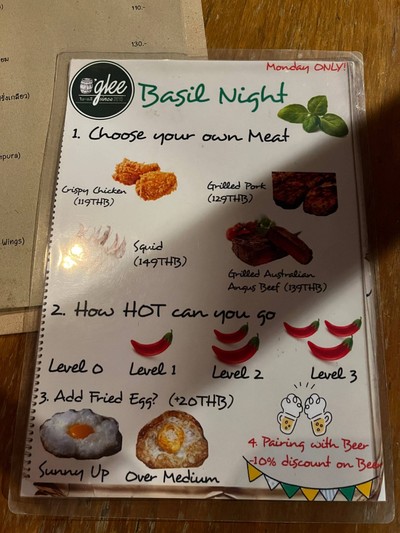 110.-
130.-
Monday ONLY!
glee
Basil Night
1. Choose your own Meat
Crispy Chicken
(119THB)
Grilled Pork
(129THB)
Squid
(149THB)
Grilled Australian
Angus Beef (139THB)
2. How HOT can you go
Level 0 Level 1 Level 2 Level 3
3. Add Fried Egg? (+20THB)
Sunny Up Over Medium
4. Pairing with Beer
-10% discount on Beer
Wings)